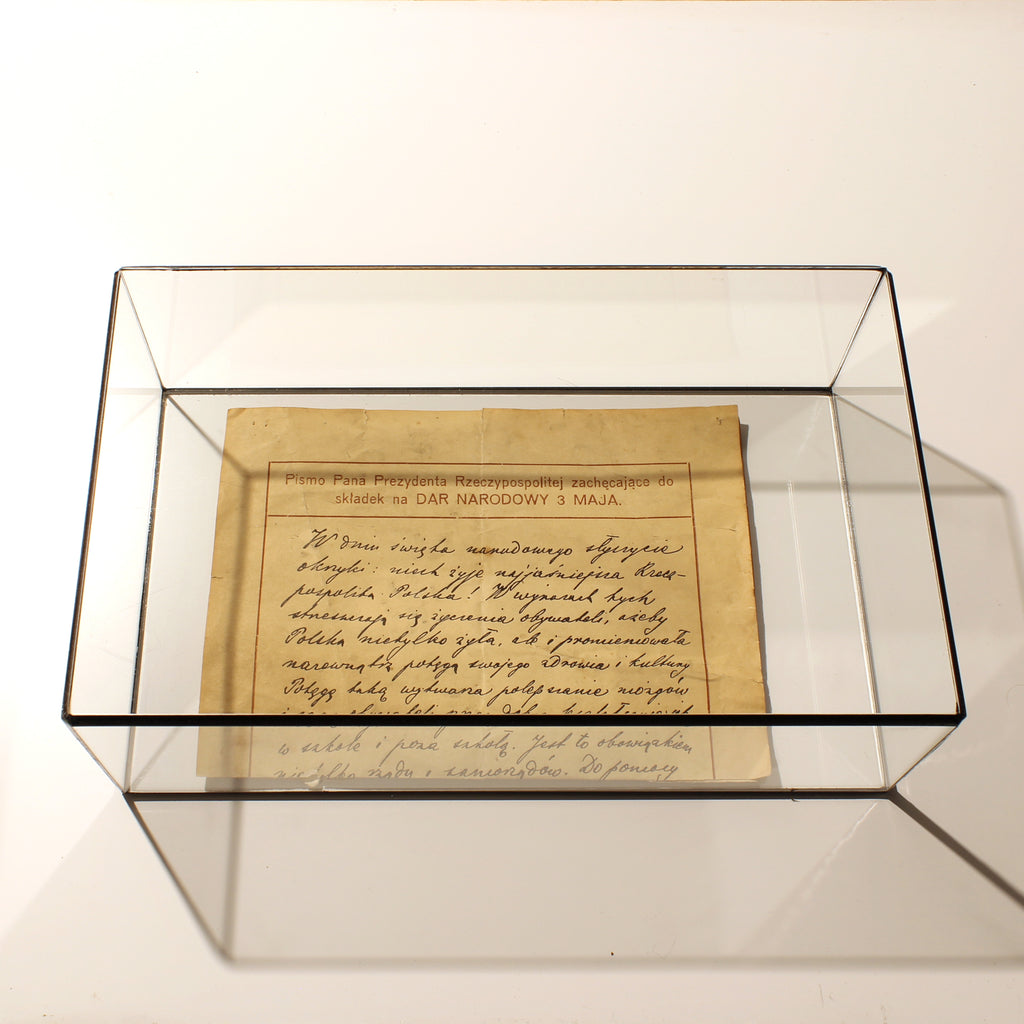 Pismo Pana Prezydenta Rzeczypospolitej zachęcające do
składek na DAR NARODOWY 3 MAJA.
W dniu święta narodowego słyszycie
okrzyki: niech żyje najjaśniejsza Rzecz-
pospolita Polska! W wyrazach tych
streszczają się życzenia obywateli, ażeby
Polska nietylko żyła, ale i promieniowała
nazewnątrz potęgą swojego zdrowia i kultury
Potęgę taką wytwarza polepszanie mózgów
i
w szkole i poza szkołą. Jest to obowiązkiem
nietylko rządu i samorządów. Do pomocy